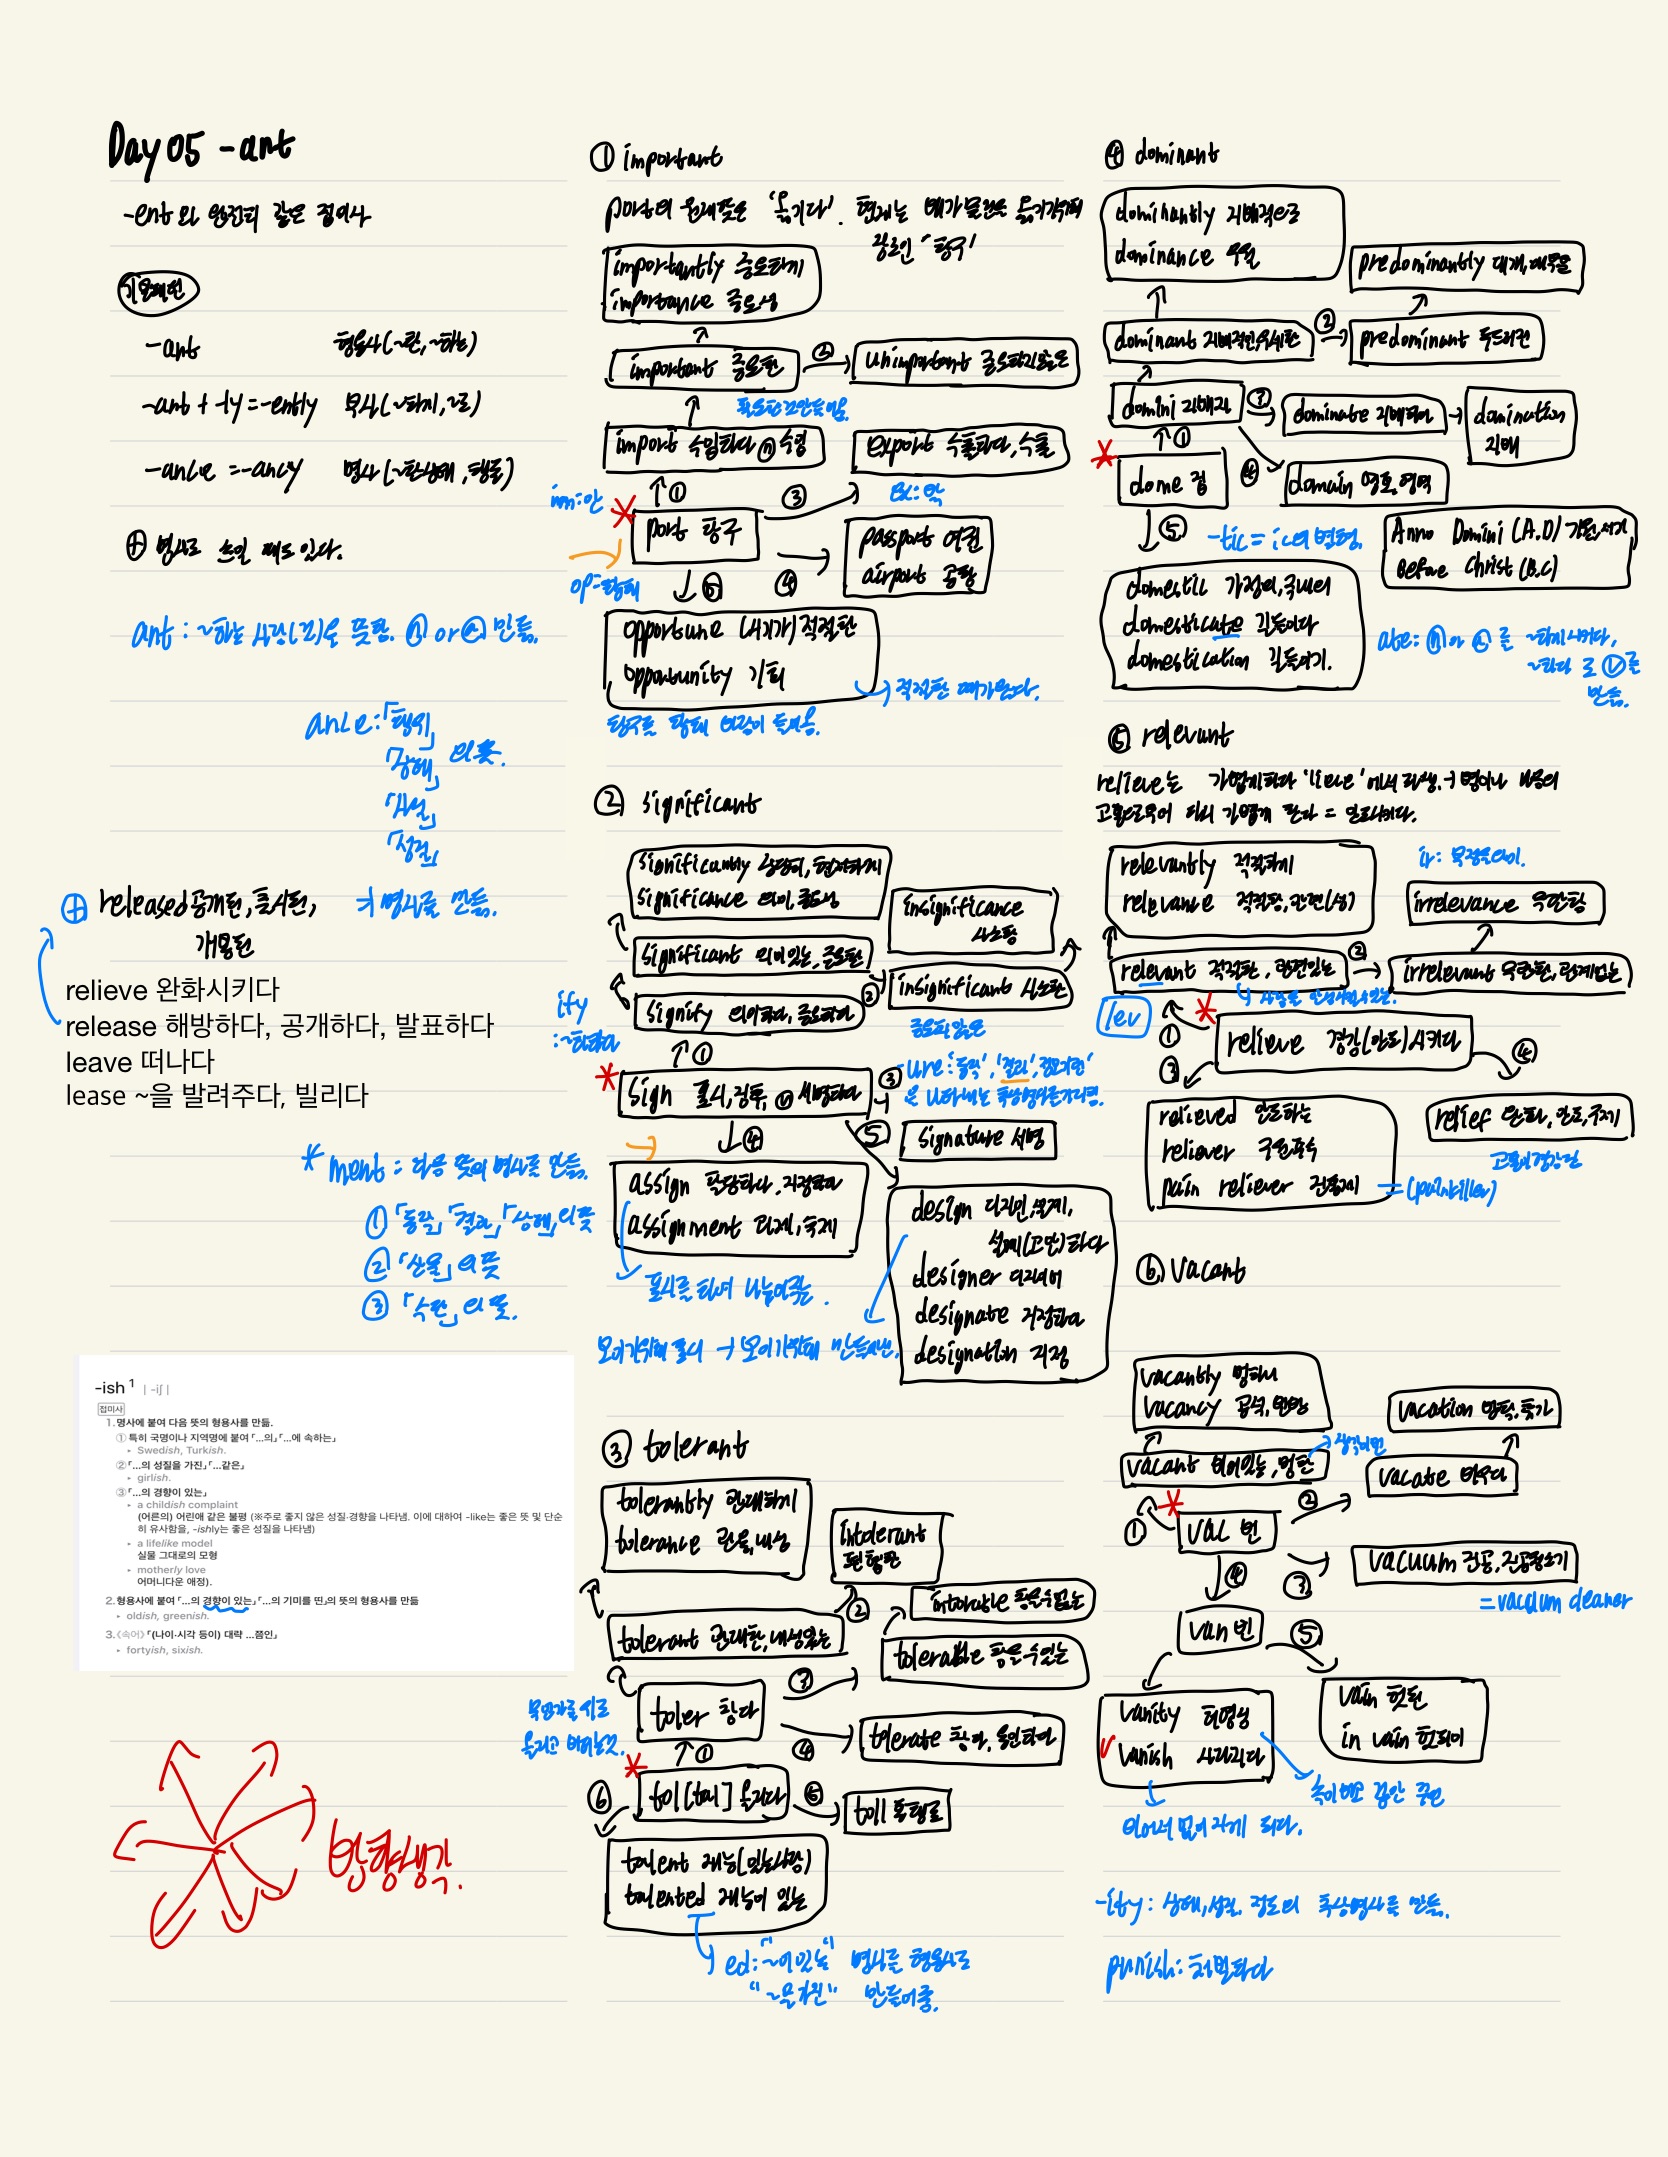 Day 05 -ant
-ent 와 완전히 같은 접미사
기본패턴
-ant 형용사(~한, ~하는)
-ant + -ly = -ently 부사(~하게, ~로)
-ance = -ancy 명사(~한상태, 행동)
⊕ 명사로 쓰일 때도 있다.
ant : ~하는 사람(것)을 뜻함. ⓝ or ⓐ 만듦.
ance : 「행위」
「상태」 의 뜻.
「사실」
「성질」
⊕ released 공개된, 출시된, → 명사를 만듦.
개봉된
relieve 완화시키다
release 해방하다, 공개하다, 발표하다
leave 떠나다
lease ~을 발려주다, 빌리다
* ment : 다음 뜻의 명사를 만듦.
① 「동작」, 「결과」, 「상태」의 뜻
② 「산물」의 뜻
③ 「수단」의 뜻.
-ish¹ | -iʃ |
접미사
1. 명사에 붙여 다음 뜻의 형용사를 만듦.
① 특히 국명이나 지역명에 붙여 「…의」 「…에 속하는」
▸ Swedish, Turkish.
② 「…의 성질을 가진」 「…같은」
▸ girlish.
③ 「…의 경향이 있는」
▸ a childish complaint
(어른의) 어린애 같은 불평 (※주로 좋지 않은 성질·경향을 나타냄. 이에 대하여 -like는 좋은 뜻 및 단순
히 유사함을, -ishly는 좋은 성질을 나타냄)
▸ a lifelike model
실물 그대로의 모형
▸ motherly love
어머니다운 애정).
2. 형용사에 붙여 「…의 경향이 있는」 「…의 기미를 띤」의 뜻의 형용사를 만듦
▸ oldish, greenish.
3. 《속어》 「(나이·시각 등이) 대략 …쯤인」
▸ fortyish, sixish.
방향생각.
① important
port의 원래뜻은 '옮기다'. 현재는 배가 물건을 옮기기위해
장소인 '항구'
importantly 중요하게
importance 중요성
important 중요한 ② unimportant 중요하지않은
import 수입하다 ⓝ 수입 export 수출하다, 수출
im : 안 ① ③ ex : 밖
* port 항구 passport 여권
airport 공항
④
op = 향해 ⑤
opportune (시기가) 적절한
opportunity 기회
적절한 때가온다.
항구를 향해 바람이 들어옴.
② significant
significantly 상당히, 현저하게
significance 의미, 중요성
insignificance
사소함
significant 의미있는, 중요한
② insignificant 사소한
ify signify 의미하다, 중요하다
: ~화하다 중요하지않은
①
* sign 표시, 징후, ⓥ 서명하다 ③
-ure : '동작', '결과',
④ ⑤ signature 서명
assign 할당하다, 지정하다
assignment 과제, 숙제
표시를 하여 나눠주는.
design 디자인, 설계,
설계(고안)하다
designer 디자이너
designate 지정하다
designation 지정
③ tolerant
tolerantly 관대하게
tolerance 관용, 내성
intolerant
편협한
tolerant 관대한, 내성있는 ② intolerable 참을수없는
tolerable 참을수있는
toler 참다 ③
① ④ tolerate 참다, 용인하다
* tol[tal] 올리다 ⑤ toll 통행료
⑥
talent 재능(있는사람)
talented 재능이 있는
ed : "~이 있는" 명사를 형용사로
"~을 가진" 만들어줌.
④ dominant
dominantly 지배적으로
dominance 우월
predominantly 대개, 대부분
dominant 지배적인, 우세한 ② predominant 두드러진
domini 지배자 ③ dominate 지배하다 → domination
지배
* ①
dome 집 ④ domain 영토, 영역
⑤ -tic = ic의 변형.
Anno Domini (A.D) 기원, 서기
Before Christ (B.C)
domestic 가정의, 국내의
domesticate 길들이다
domestication 길들이기.
ate : ⓝ or ⓐ 를 ~하게시키다,
~하다 로 ⓥ를
만듦.
⑤ relevant
relieve는 가볍게하다 'lieve'에서 파생. → 병이나 마음의
고통으로부터 다시 가볍게 한다 = 안도시키다.
relevantly 적절하게
relevance 적절함, 관련(성)
ir : 부정을의미.
irrelevance 무관함
relevant 적절한, 관련있는 ② irrelevant 무관한, 관계없는
lev
① * relieve 경감(안도)시키다
③ ④
relieved 안도하는
reliever 구원투수
pain reliever 진통제 = (painkiller)
relief 안도, 완화, 구제
⑥ vacant
vacantly 멍하니
vacancy 공석, 빈방
vacation 방학, 휴가
vacant 비어있는, 멍한
vacate 비우다
* ① vac 빈 ②
③ vacuum 진공, 진공청소기
= vacuum cleaner
④
van 빈 ⑤
vanity 허영심
vanish 사라지다
vain 헛된
in vain 헛되이
비어서 없어지게 되다.
-ity : 상태, 성질, 정도의 추상명사를 만듦.
punish : 처벌하다